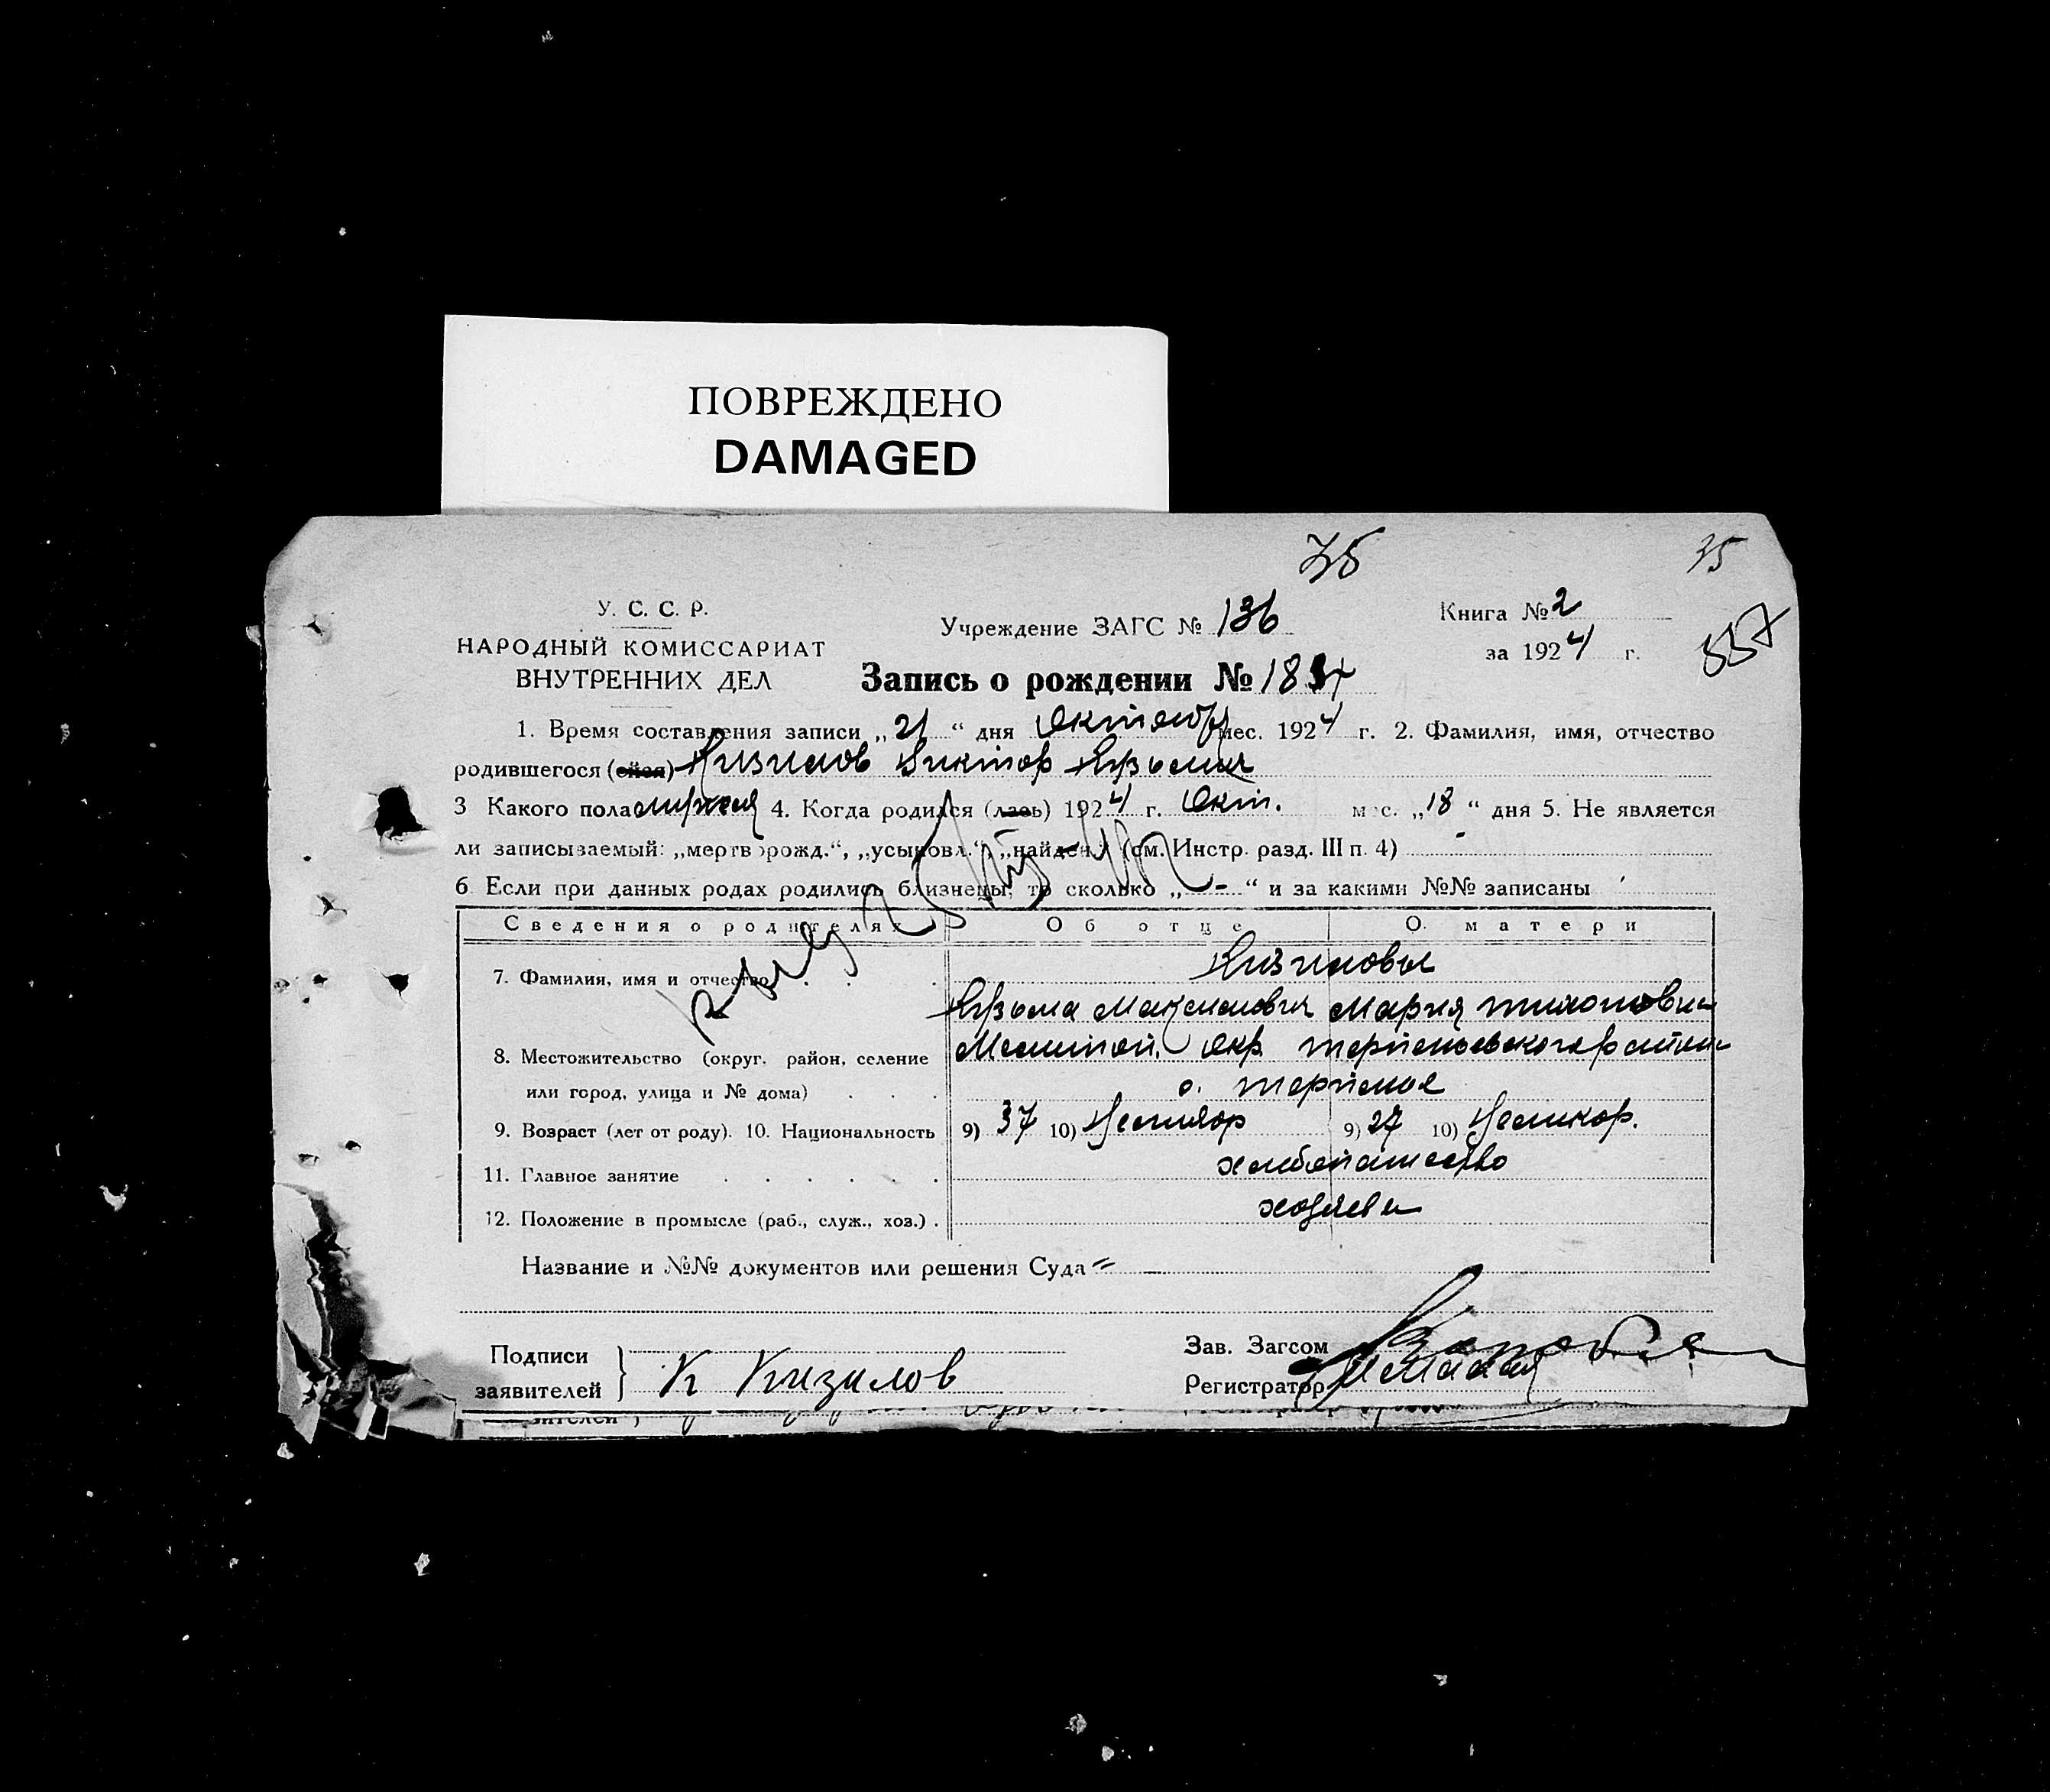 ПОВРЕЖДЕНО
DAMAGED
35
У. С. С. Р.
НАРОДНЫЙ КОМИССАРИАТ
ВНУТРЕННИХ ДЕЛ
Учреждение ЗАГС № 136
Книга № 2
за 1924 г.
557
Запись о рождении №
1. Время составления записи „21“ дня Октября мес. 1924 г. 2. Фамилия, имя, отчество
родившегося (ейся) Кизилов Виктор Кузьмич
3 Какого пола мужской 4. Когда родился (лась) 1924 г. Окт. мес. „18“ дня 5. Не является
ли записываемый: „мертворожд.“, „усыновл.“, „найден.“ (см. Инстр. разд. III п. 4) -
6. Если при данных родах родились близнецы, то сколько „-“ и за какими №№ записаны
Сведения о родителях Об отце О матери
7. Фамилия, имя и отчество Кизиловы
Кузьма Максимович Мария Тихоновна
8. Местожительство (округ. район, селение Мелитоп. Окр Терпеньевского района
или город, улица и № дома) с. Терпенье
9. Возраст (лет от роду). 10. Национальность 9) 37 10) 9) 27 10) Великор.
11. Главное занятие хлебопашество
12. Положение в промысле (раб., служ., хоз.) хозяева
Название и №№ документов или решения Суда
Подписи заявителей К Кизилов
Зав. Загсом
Регистратор